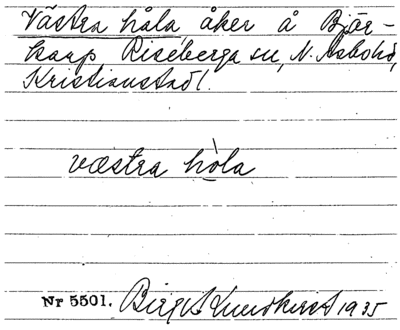 Västra håla, åker å Bjär-
karp Riseberga sn, N. Åsbohd,
Kristianstads l.
væstra hòla
Nr 5501. Birgit Lundkvist 1935